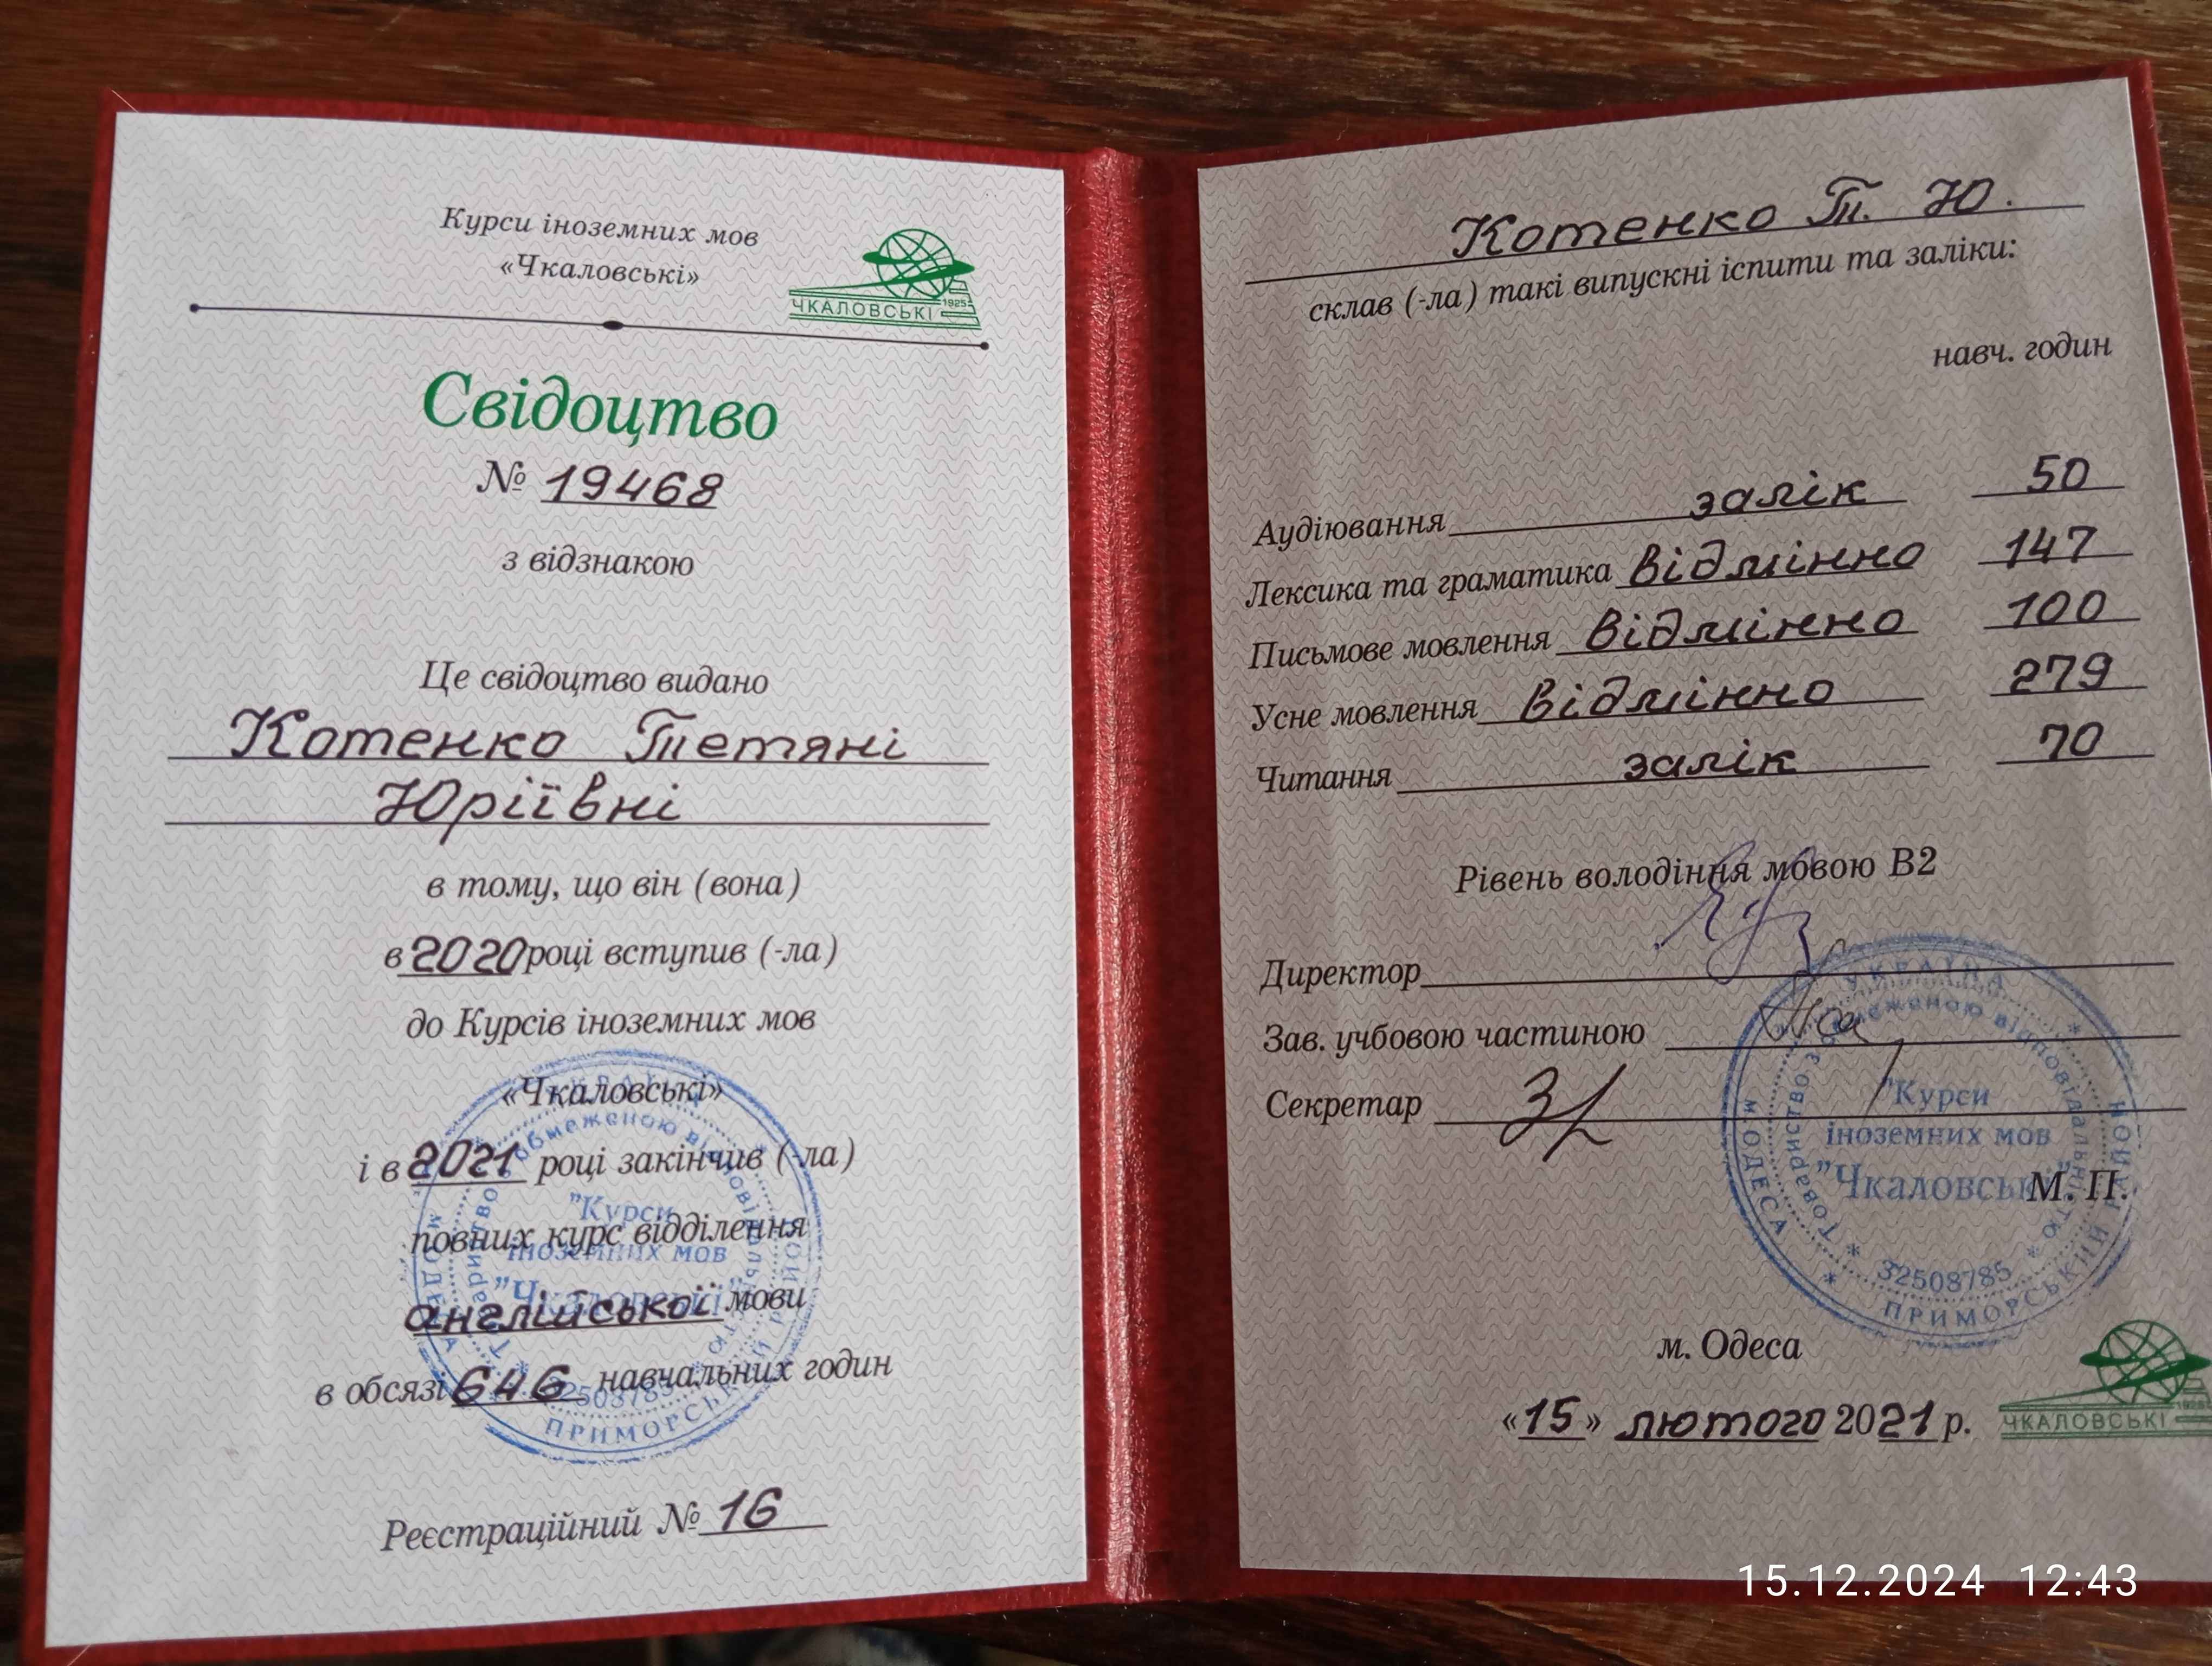 Курси іноземних мов
«Чкаловські»
ЧКАЛОВСЬКІ 1925
Свідоцтво
№ 19468
з відзнакою
Це свідоцтво видано
Котенко Тетяні
Юріївні
в тому, що він (вона)
в 2020 році вступив (-ла)
до Курсів іноземних мов
«Чкаловські»
і в 2021 році закінчив (-ла)
повних курс відділення
англійської мови
в обсязі 646 навчальних годин
Реєстраційний № 16
Котенко Т. Ю.
склав (-ла) такі випускні іспити та заліки:
навч. годин
Аудіювання залік 50
Лексика та граматика відмінно 147
Письмове мовлення відмінно 100
Усне мовлення відмінно 279
Читання залік 70
Рівень володіння мовою В2
Директор
Зав. учбовою частиною
Секретар
УКРАЇНА
м ОДЕСА
ПРИМОРСЬКИЙ РАЙОН
Товариство з обмеженою відповідальністю
32508785
"Курси
іноземних мов
"Чкаловські"
М. П.
м. Одеса
«15» лютого 2021 р.
ЧКАЛОВСЬКІ 1925
15.12.2024 12:43